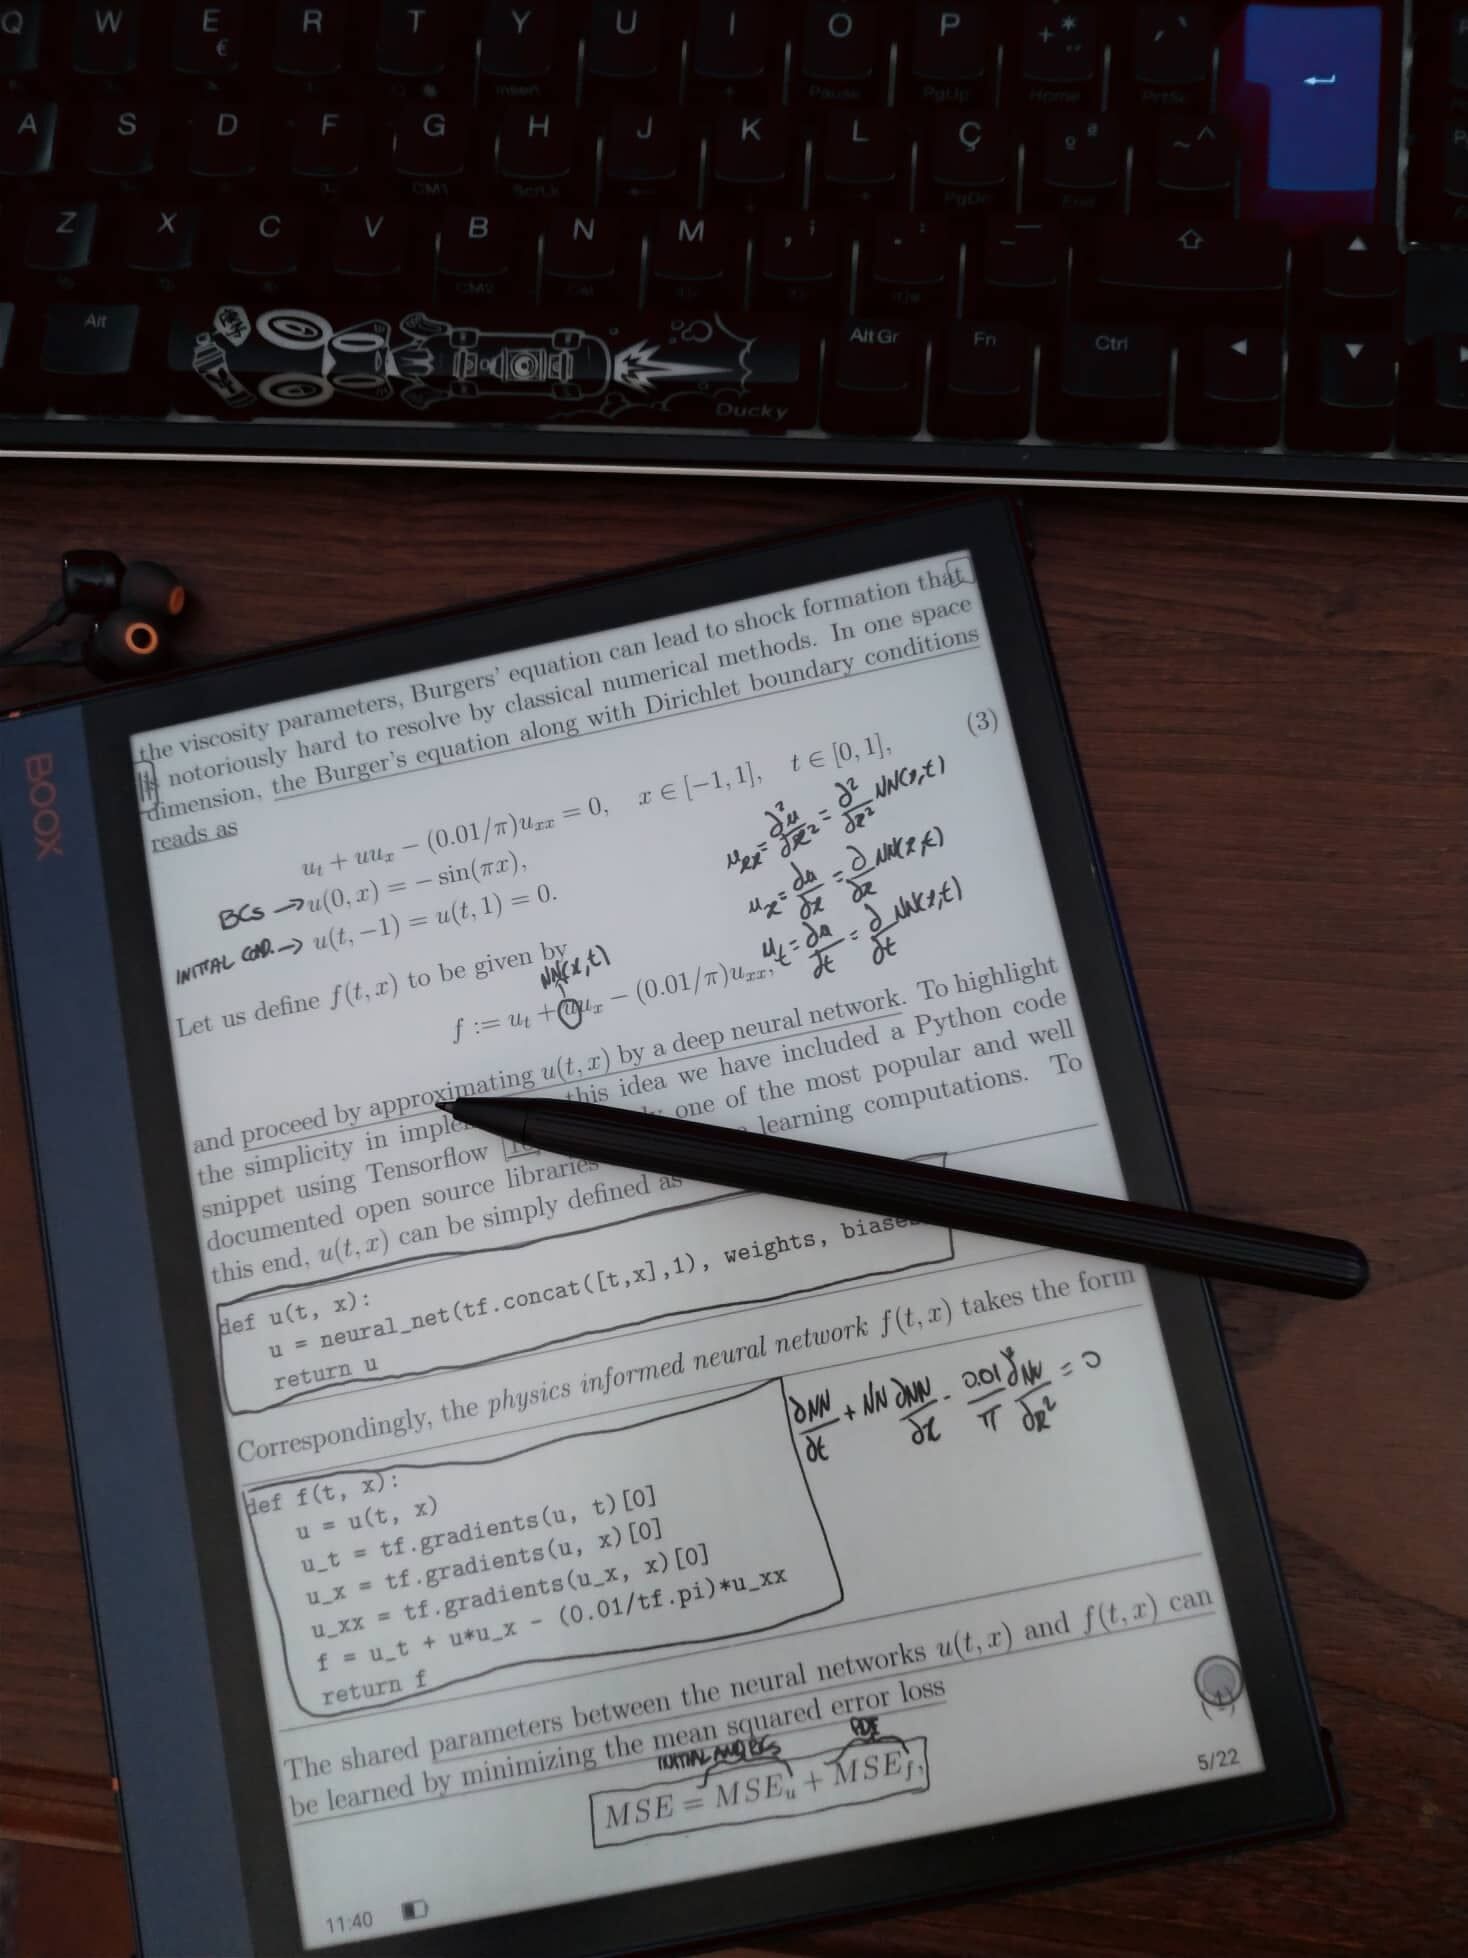 Q W E R T Y U I O P + * ¨ ´ `
€
Insert Pause PgUp Home PrtSc
A S D F G H J K L Ç º ª ~ ^
CM1 ScrLk PgDn End
Z X C V B N M , ; . : - _
CM2
Alt Alt Gr Fn Ctrl
Ducky
BOOX
the viscosity parameters, Burgers' equation can lead to shock formation that
is notoriously hard to resolve by classical numerical methods. In one space
dimension, the Burger's equation along with Dirichlet boundary conditions
reads as
u_t + uu_x − (0.01/π)u_xx = 0, x ∈ [−1, 1], t ∈ [0, 1], (3)
BCs → u(0, x) = − sin(πx),
INITIAL COND. → u(t, −1) = u(t, 1) = 0.
u_xx = ∂²u/∂x² = ∂²/∂x² NN(x,t)
u_x = ∂u/∂x = ∂/∂x NN(x,t)
u_t = ∂u/∂t = ∂/∂t NN(x,t)
Let us define f(t, x) to be given by
NN(x,t)
f := u_t + uu_x − (0.01/π)u_xx,
and proceed by approximating u(t, x) by a deep neural network. To highlight
the simplicity in this idea we have included a Python code
snippet using Tensorflow one of the most popular and well
documented open source libraries learning computations. To
this end, u(t, x) can be simply defined as
def u(t, x):
u = neural_net(tf.concat([t,x],1), weights, biases
return u
Correspondingly, the physics informed neural network f(t, x) takes the form
∂NN/∂t + NN ∂NN/∂x - 0.01/π ∂²NN/∂x² = 0
def f(t, x):
u = u(t, x)
u_t = tf.gradients(u, t)[0]
u_x = tf.gradients(u, x)[0]
u_xx = tf.gradients(u_x, x)[0]
f = u_t + u*u_x - (0.01/tf.pi)*u_xx
return f
The shared parameters between the neural networks u(t, x) and f(t, x) can
be learned by minimizing the mean squared error loss
INITIAL AND BCS PDE
MSE = MSE_u + MSE_f,
5/22
11:40